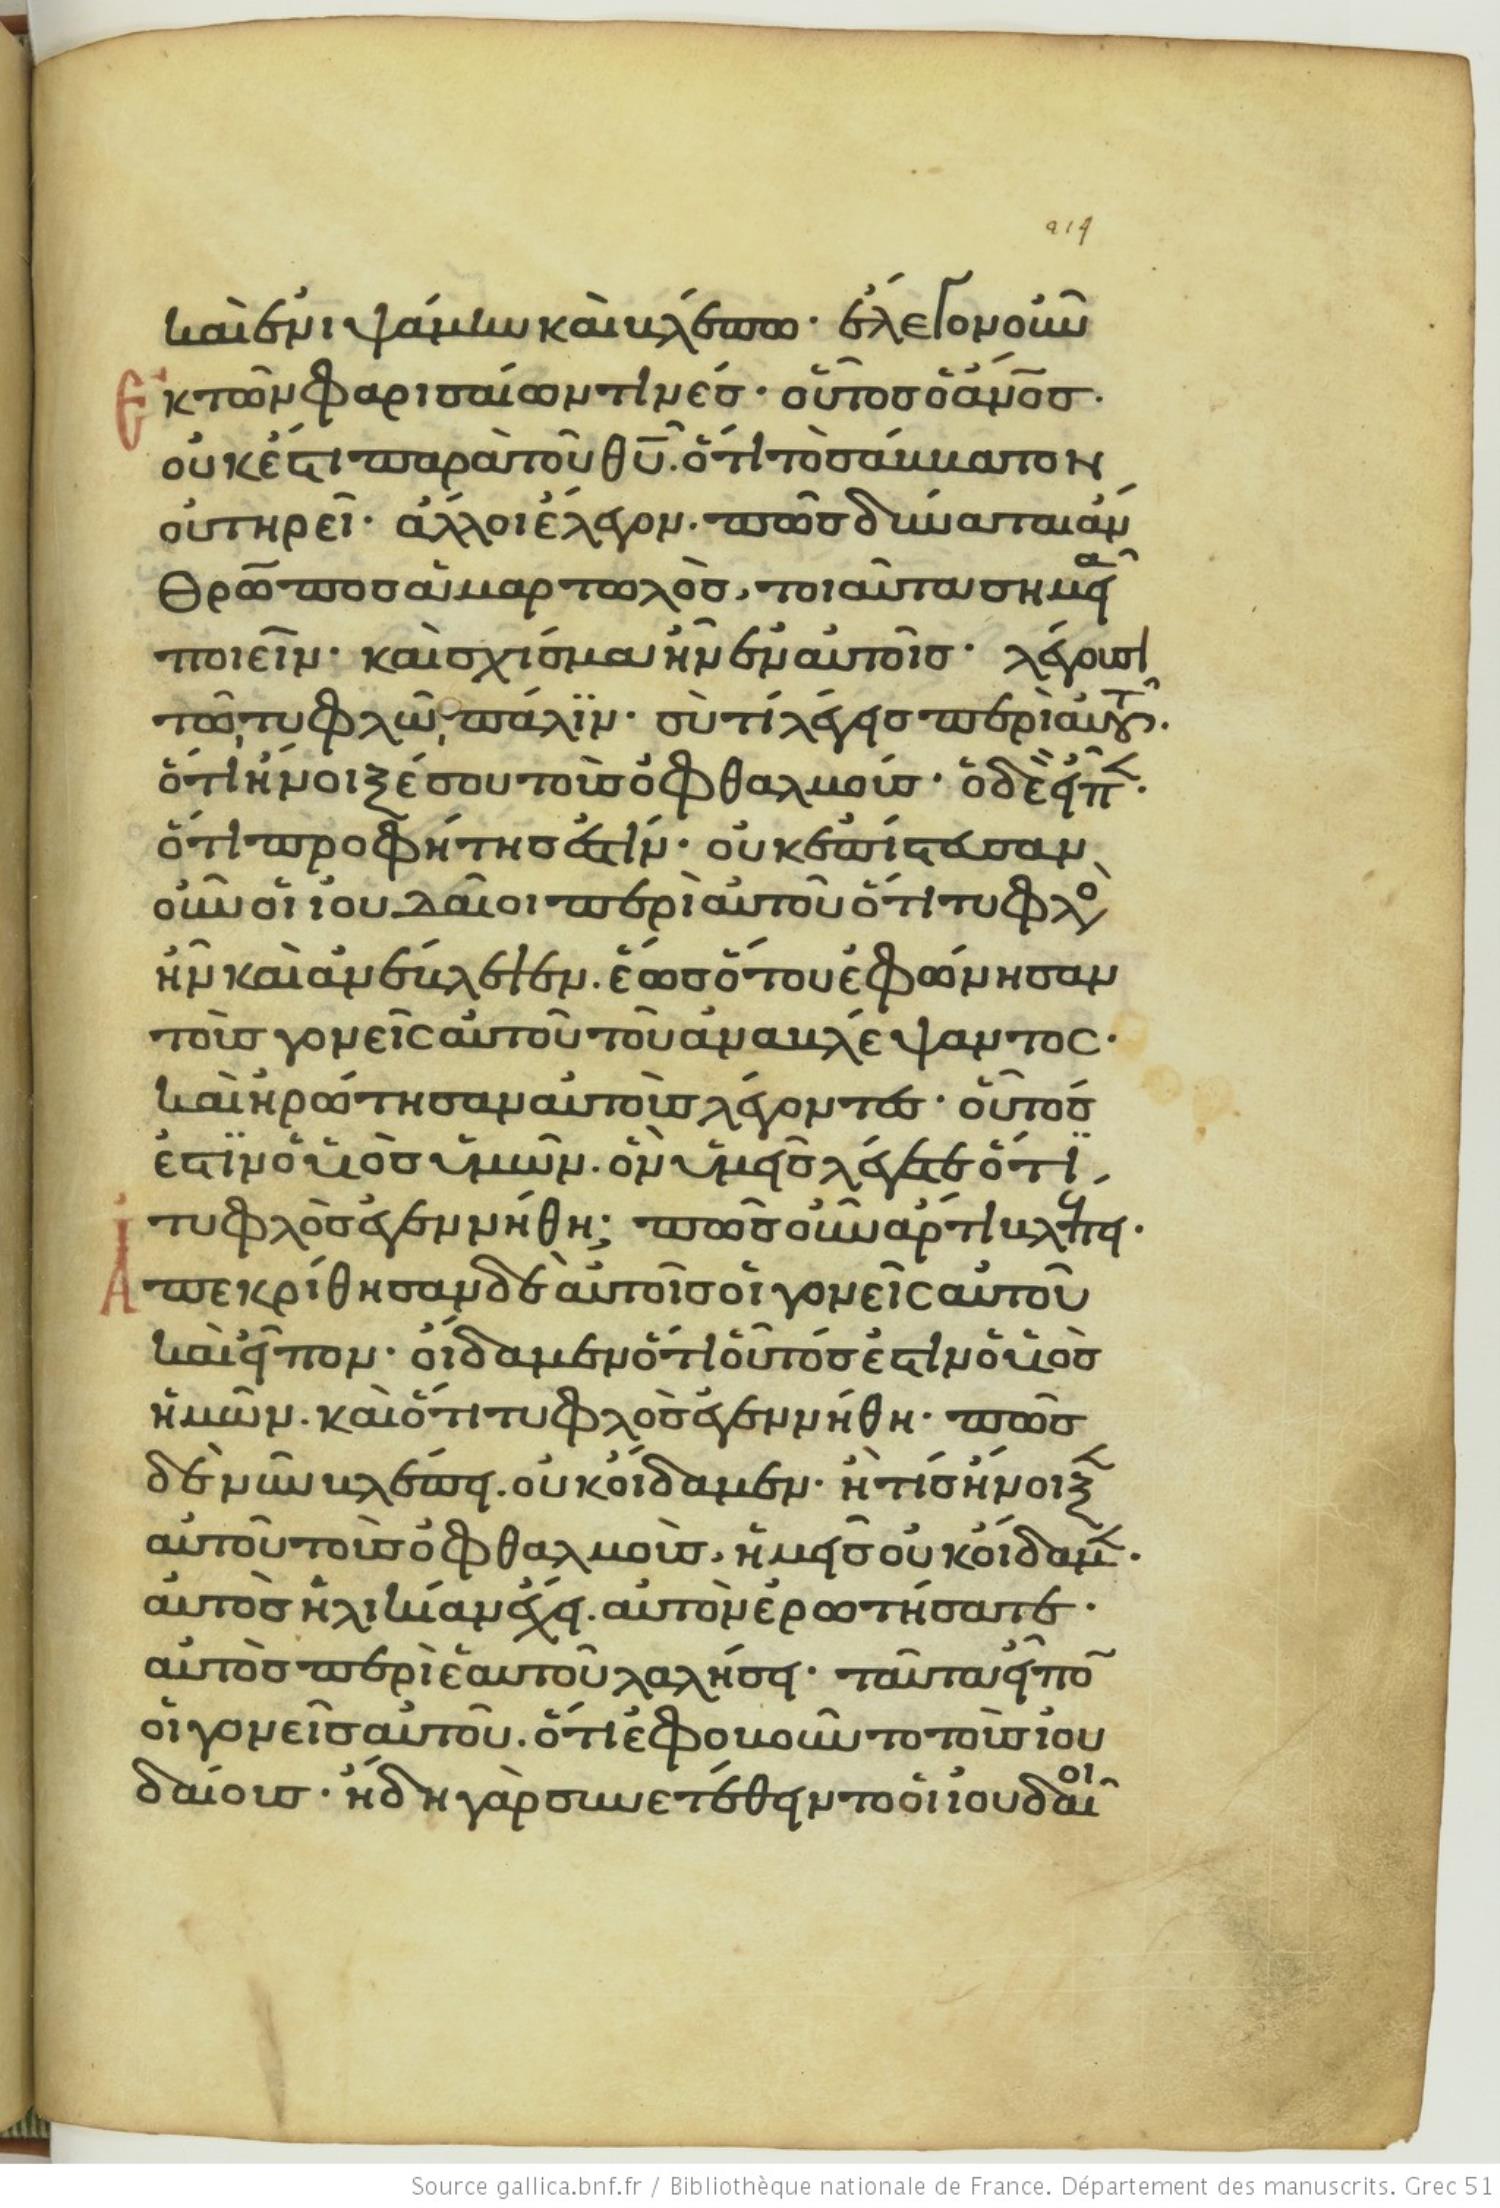 219
καὶ ἐνιψάμην καὶ βλέπω· ἔλεγον οὖν
Ἐκ τῶν φαρισαίων τινές· οὗτος ὁ ἄν̅ο̅ς̅·
οὐκ ἔστι παρὰ τοῦ θ̅υ̅. ὅτι τὸ σάββατον
οὐ τηρεῖ· ἄλλοι ἔλεγον. πῶς δύναται ἄν
θρω̅πος ἁμαρτωλὸς, τοιαῦτα σημεῖα
ποιεῖν· καὶ σχίσμα ἦν ἐν αὐτοῖς· λέγουσι
τῶ τυφλῶ πάλϊν· σὺ τί λέγεις περὶ αὐτοῦ.
ὅτι ἤνοιξέ σου τοὺς ὀφθαλμούς· ὁ δὲ εἶπεν.
ὅτι προφήτης ἐστίν· οὐκ ἐπίστευσαν
οὖν οἱ ἰουδαῖοι περὶ αὐτοῦ ὅτι τυφλὸς
ἦν καὶ ἀνέβλεψεν. ἕως ὅτου ἐφώνησαν
τοὺς γονεῖς αὐτοῦ τοῦ ἀναβλέψαντος·
καὶ ἠρώτησαν αὐτοὺς λέγοντες· οὗτός
ἐστϊν ὁ υἱὸς ὑμῶν. ὃν ὑμεῖς λέγετε ὅτϊ
τυφλὸς ἐγεννήθη; πῶς οὖν ἄρτι βλέπει·
Ἀπεκρίθησαν δὲ αὐτοῖς οἱ γονεῖς αὐτοῦ
καὶ εἶπον· οἴδαμεν ὅτι οὗτός ἐστιν ὁ υἱὸς
ἡμῶν. καὶ ὅτι τυφλὸς ἐγεννήθη· πῶς
δὲ νῦν βλέπει. οὐκ οἴδαμεν· ἢ τίς ἤνοιξεν
αὐτοῦ τοὺς ὀφθαλμοὺς, ἡμεῖς οὐκ οἴδαμεν.
αὐτὸς ἡλικίαν ἔχει. αὐτὸν ἐρωτήσατε·
αὐτὸς περὶ ἑαυτοῦ λαλήσει· ταῦτα εἶπο̅
οἱ γονεῖς αὐτοῦ. ὅτι ἐφοβοῦντο τοὺς ἰου
δαίους· ἤδη γὰρ συνετέθειντο οἱ ἰουδαῖοι
Source gallica.bnf.fr / Bibliothèque nationale de France. Département des manuscrits. Grec 51